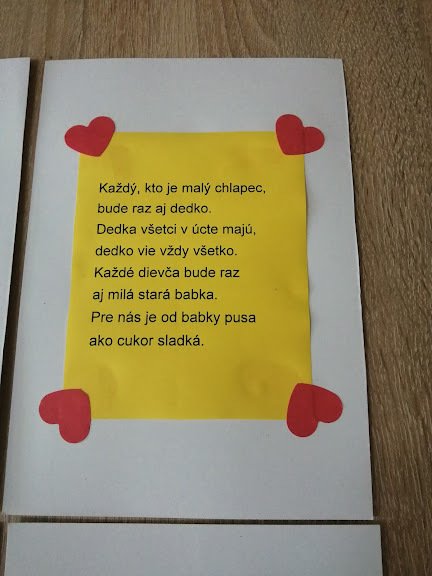 Každý, kto je malý chlapec,
bude raz aj dedko.
Dedka všetci v úcte majú,
dedko vie vždy všetko.
Každé dievča bude raz
aj milá stará babka.
Pre nás je od babky pusa
ako cukor sladká.